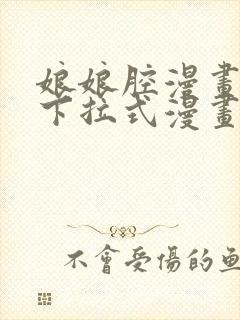 娘娘腔漫畫
下拉式漫畫
不會受傷的魚